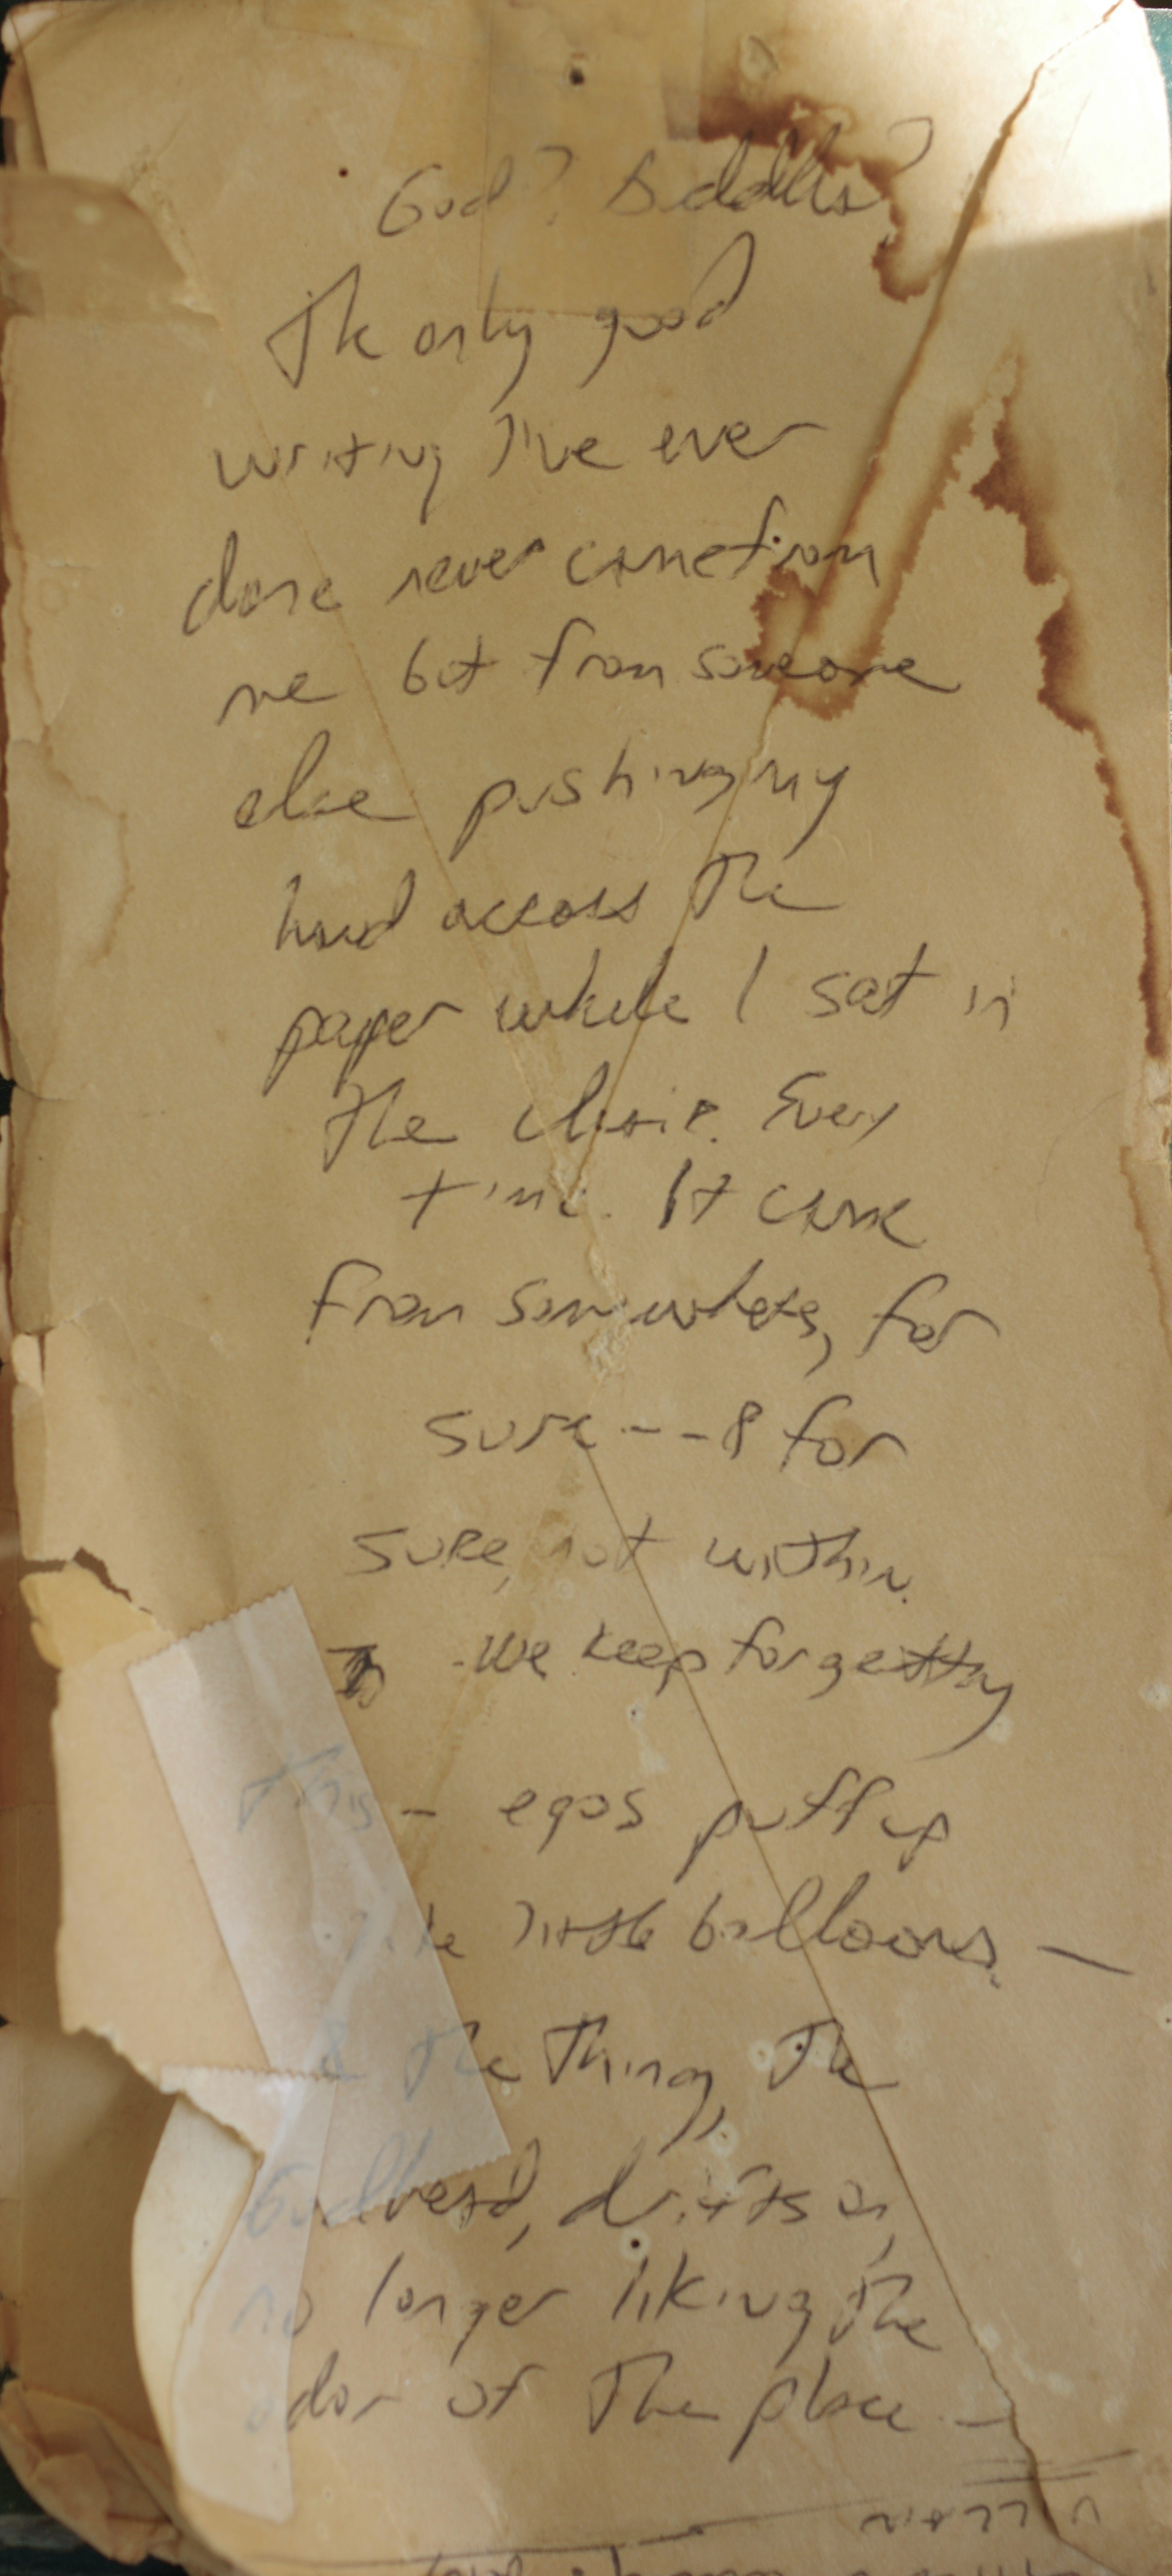 God? Buddhas?
The only good
writing I've ever
done never came from
me but from someone
else pushing my
hand across the
paper while I sat in
the chair. Every
time. It came
from somewhere, for
sure --- & for
sure, not within.
We keep forgetting
this - egos puff up
like little balloons. —
& the thing, the
Godhead, drifts on,
no longer liking the
odor of the place. —